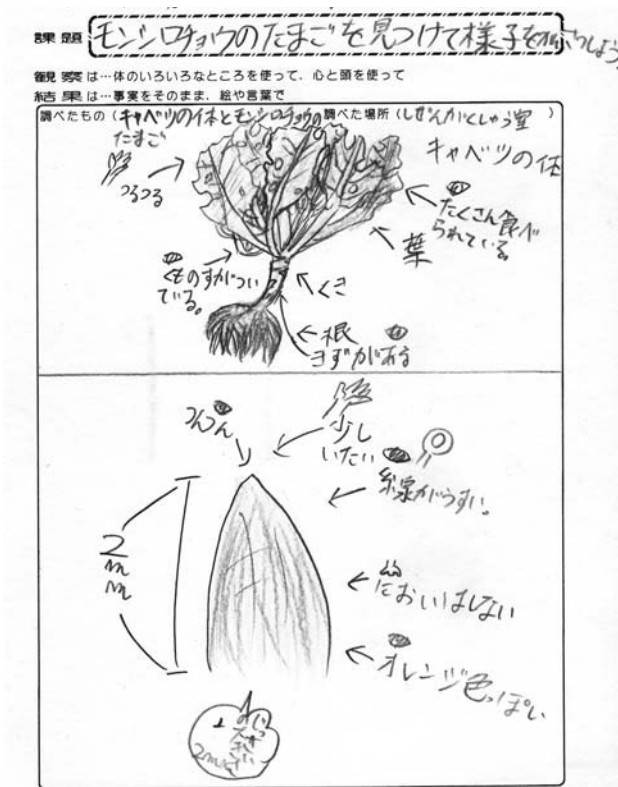 課題 モンシロチョウのたまごを見つけて様子を
観察は…体のいろいろなところを使って、心と頭を使って
結果は…事実をそのまま、絵や言葉で
調べたもの（キャベツの体とモンシロチョウの
たまご
調べた場所（しぜんがくしゅう室）
キャベツの体
つるつる
たくさん食べ
られている。
葉
くものすがつい
ている。
くき
根
きずがある
つんつん
少し
いたい
線がうすい。
2mm
においはしない
オレンジ色っぽい
2mm